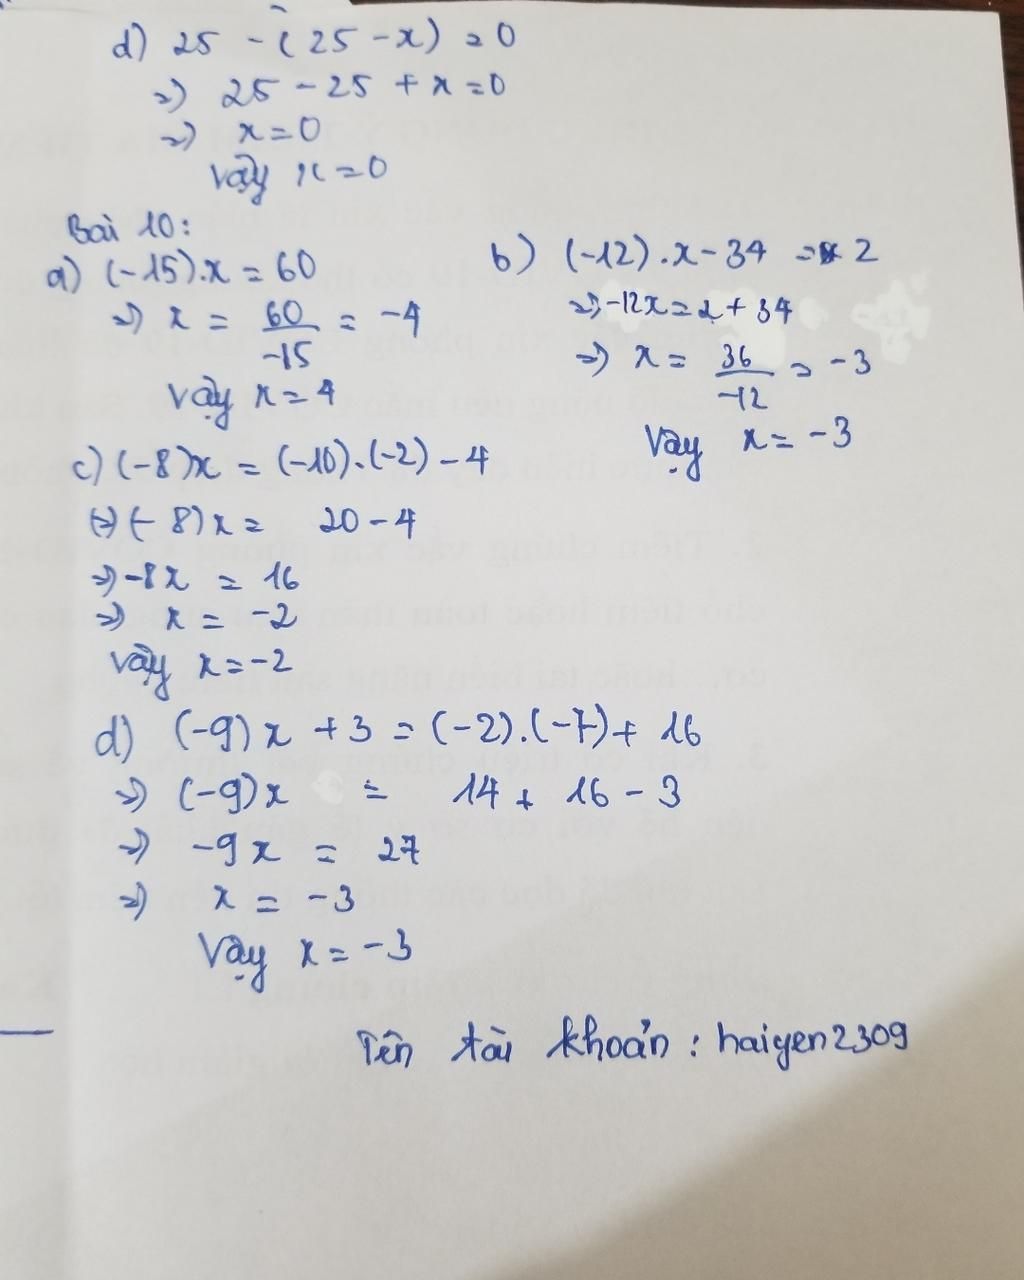 d) 25 - (25 - x) = 0
=> 25 - 25 + x = 0
=> x = 0
vậy x = 0
Bài 10:
a) (-15).x = 60
=> x = 60/-15 = -4
Vậy x = 4
b) (-12).x - 34 = 2
=> -12x = 2 + 34
=> x = 36/-12 = -3
Vậy x = -3
c) (-8)x = (-10).(-2) - 4
(=>) (-8)x = 20 - 4
=> -8x = 16
=> x = -2
Vậy x = -2
d) (-9)x + 3 = (-2).(-7) + 16
=> (-9)x = 14 + 16 - 3
=> -9x = 27
=> x = -3
Vậy x = -3
Tên tài khoản : haiyen2309